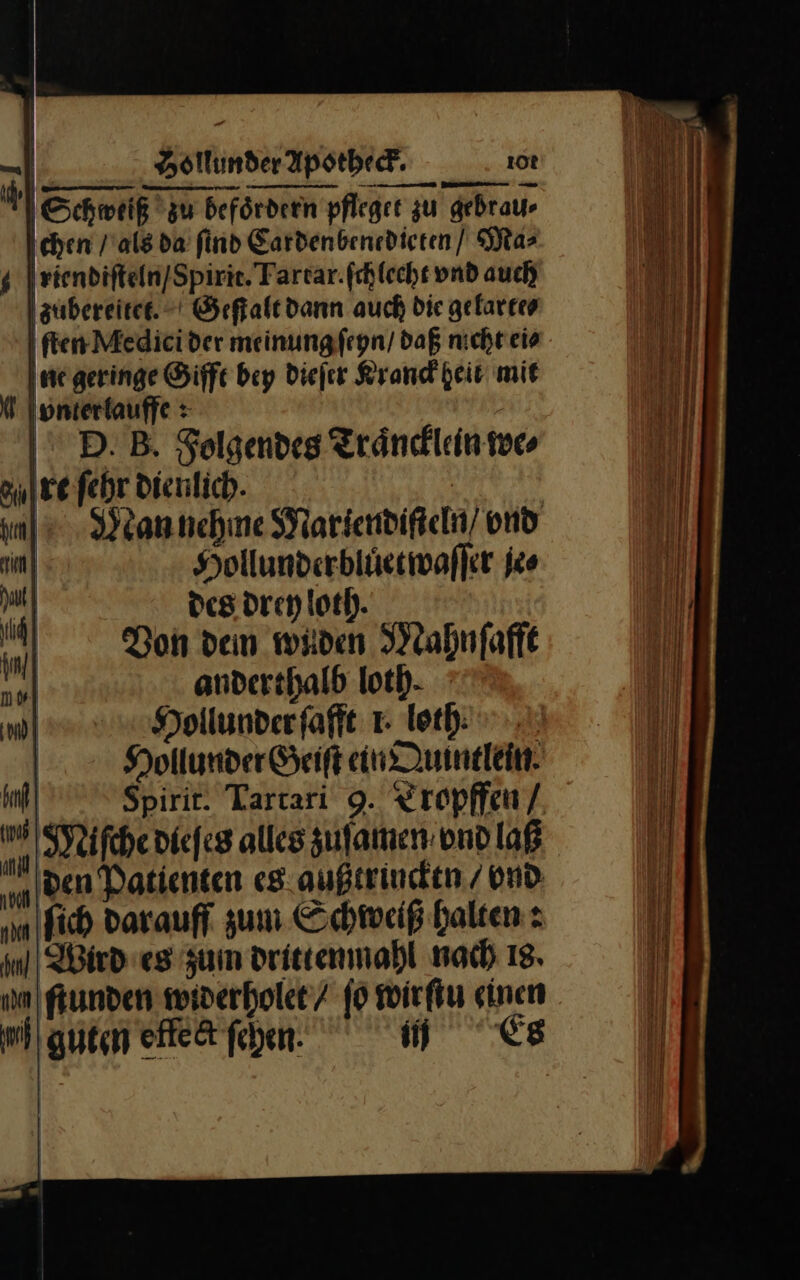 Hollunder Apotheck. 101
Schweiß zu befördern pfleget zu gebrau⸗
chen / als da ſind Cardenbenedicten / Ma⸗
riendiſteln/Spirit. Tartar. ſchlecht vnd auch
zubereitet. Geſtalt dann auch die gelarte⸗
ſten Medici der meinung ſeyn/ daß nicht ei⸗
ne geringe Gifft bey dieſer Kranckheit mit
vnterlauffe :
D. B. Folgendes Träncklein we⸗
re ſehr dienlich.
Man nehme Mariendiſteln/ vnd
Hollunderblüetwaſſer je⸗
des drey loth.
Von dem wilden Mahnſafft
anderthalb loth.
Hollunderſafft 1. loth.
Hollunder Geiſt ein Quintlein.
Spirit. Tartari 9. Tropffen /
Miſche dieſes alles zuſamen vnd laß
den Patienten es außtrincktn / vnd
ſich darauff zum Schweiß halten :
Wird es zum drittenmahl nach 18.
ſtunden widerholet / ſo wirſtu einen
guten effect ſehen. iij Es